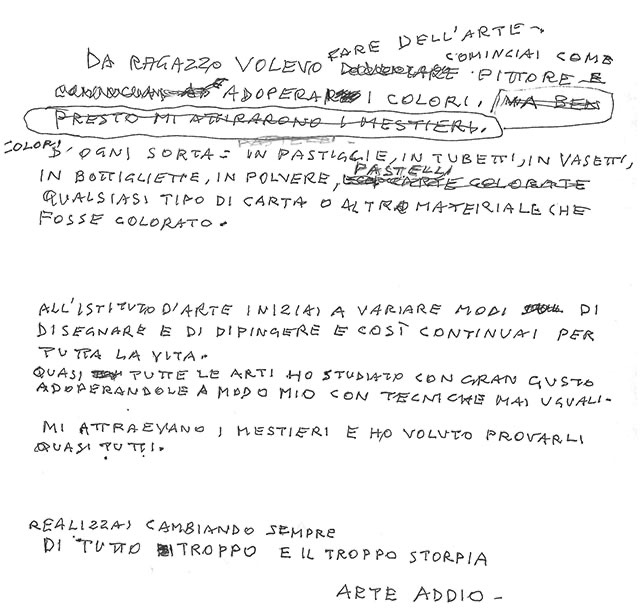 DA RAGAZZO VOLEVO FARE DELL'ARTE -
COMINCIAI COME PITTORE E
ADOPERAI I COLORI. MA BEN
PRESTO MI ATTIRARONO I MESTIERI.
PASTELLI
COLORI D'OGNI SORTA = IN PASTIGGIE, IN TUBETTI, IN VASETTI,
IN BOTTIGLIETTE, IN POLVERE, PASTELLI CARTE COLORATE
QUALSIASI TIPO DI CARTA O ALTRO MATERIALE CHE
FOSSE COLORATO.
ALL'ISTITUTO D'ARTE INIZIAI A VARIARE MODI DI
DISEGNARE E DI DIPINGERE E COSÌ CONTINUAI PER
TUTTA LA VITA.
QUASI TUTTE LE ARTI HO STUDIATO CON GRAN GUSTO
ADOPERANDOLE A MODO MIO CON TECNICHE MAI UGUALI.
MI ATTRAEVANO I MESTIERI E HO VOLUTO PROVARLI
QUASI TUTTI.
REALIZZAI CAMBIANDO SEMPRE
DI TUTTO TROPPO E IL TROPPO STORPIA
ARTE ADDIO -